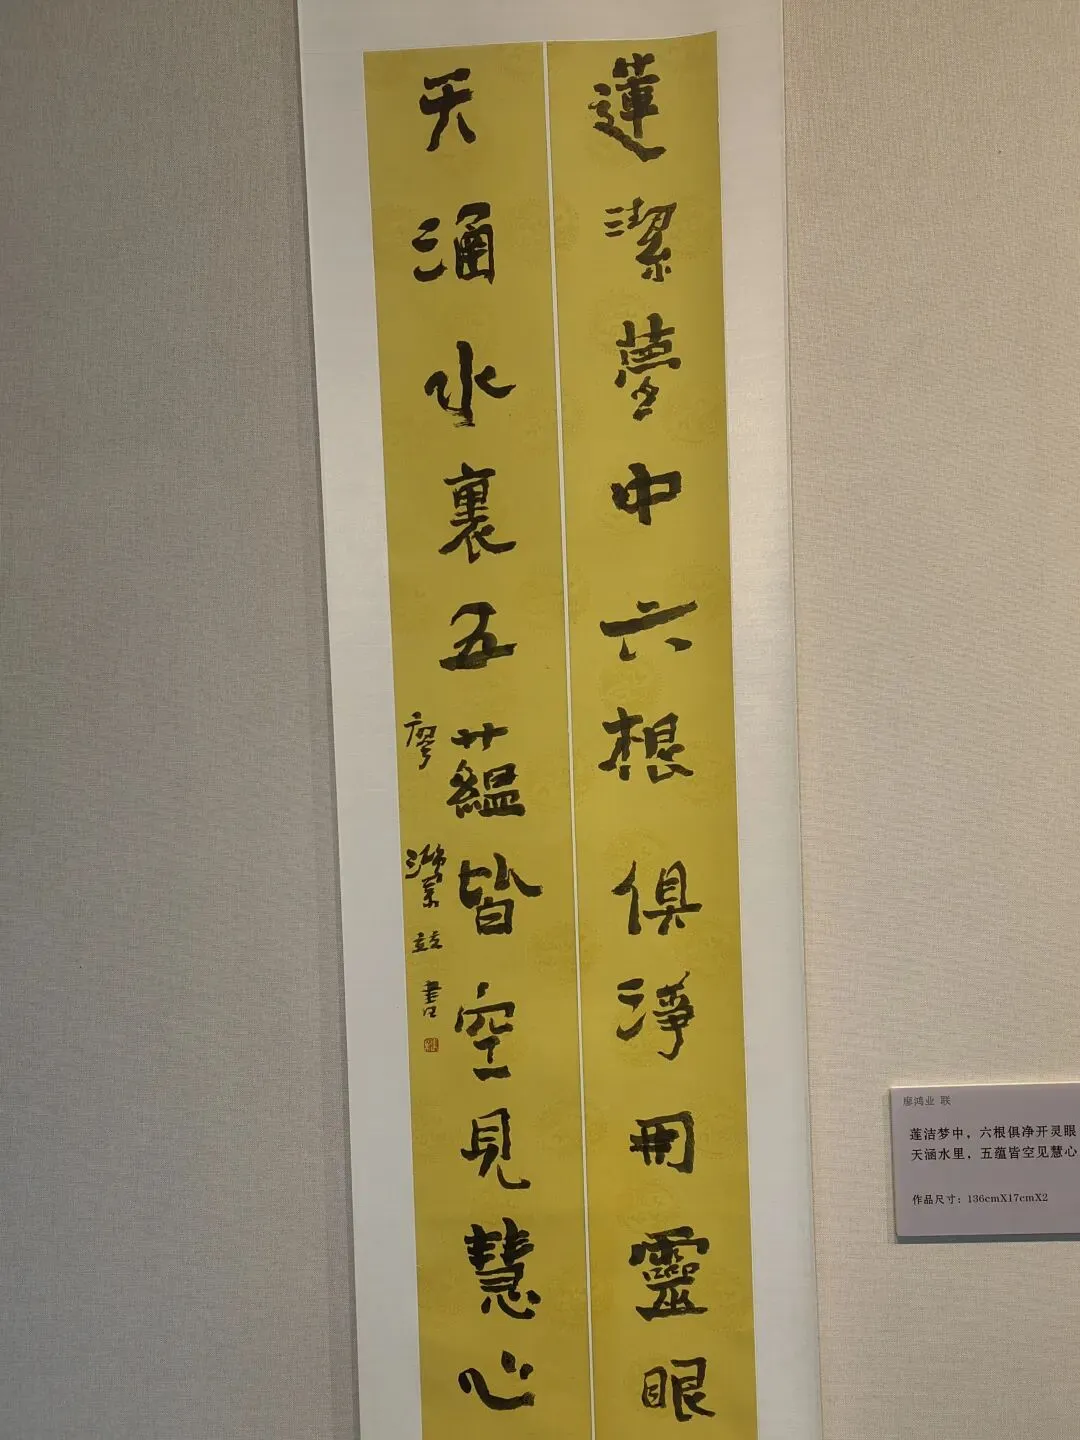 蓮潔夢中六根俱淨開靈眼
天涵水裏五蘊皆空見慧心
廖
書
廖鸿业 联
莲洁梦中，六根俱净开灵眼
天涵水里，五蕴皆空见慧心
作品尺寸：136cmX17cmX2